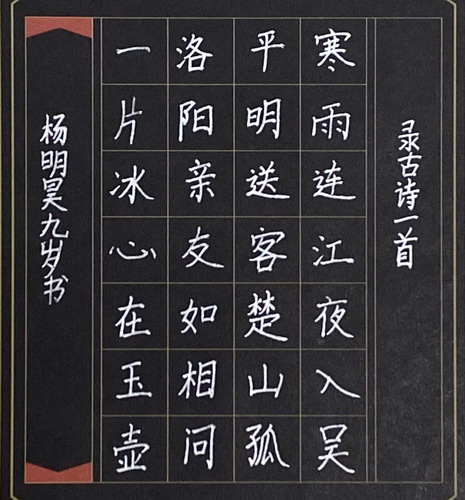 录古诗一首
寒雨连江夜入吴
平明送客楚山孤
洛阳亲友如相问
一片冰心在玉壶
杨明昊九岁书